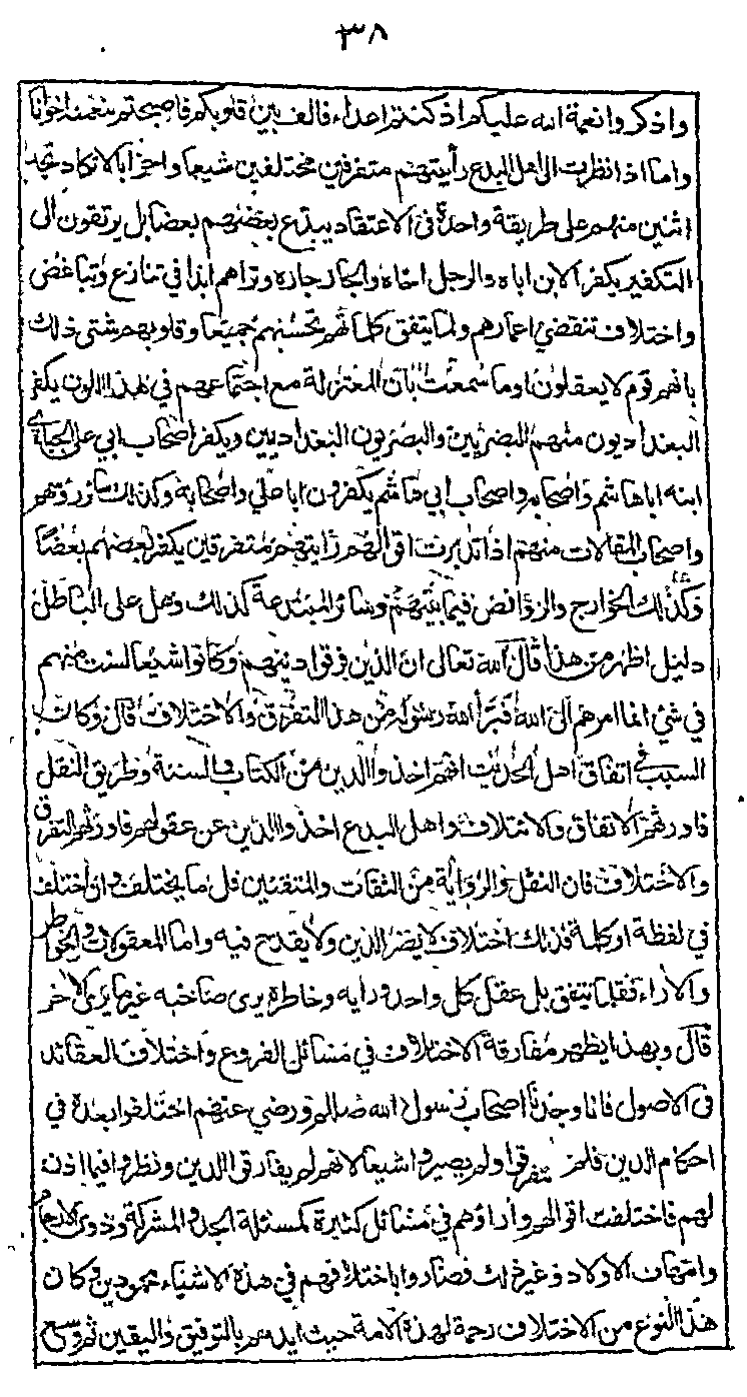 ٣٨
واذكروا نعمة الله عليكم اذ كنتم اعداء فالف بين قلوبكم فاصبحتم بنعمته اخوانا
واما اذا نظرت الى اهل البدع رأيتهم متفرقين مختلفين شيعا واحزابا لا تكاد تجد
اثنين منهم على طريقة واحدة في الاعتقاد يبدّع بعضهم بعضا بل يرتقون الى
التكفير يكفر الابن اباه والرجل اخاه والجار جاره وتراهم ابدا في تنازع وتباغض
واختلاف تنقضي اعمارهم ولما يتفق كلماتهم تحسبهم جميعا وقلوبهم شتى ذلك
بانهم قوم لا يعقلون اوما سمعت بان المعتزلة مع اجتماعهم في هذا اللون يكفر
البغداديون منهم البصريين والبصريون البغداديين ويكفر اصحاب ابي على الجبائي
ابنه اباهاشم واصحابه واصحاب ابي هاشم يكفرون اباعلي واصحابه وكذلك سائر رؤسهم
واصحاب المقالات منهم اذا تدبرت اقوالهم رايتهم متفرقين يكفر بعضهم بعضا
وكذلك الخوارج والروافض فيما بينهم وسائر المبتدعة كذلك وهل على الباطل
دليل اظهر من هذا قال الله تعالى ان الذين فرقوا دينهم وكانوا شيعا لست منهم
في شئ انما امرهم الى الله فبرأ الله رسوله من هذا التفرق والاختلاف قال وكان
السبب في اتفاق اهل الحديث انهم اخذوا الدين من الكتاب والسنة وطريق النقل
فاورثهم الاتفاق والائتلاف واهل البدع اخذوا الدين عن عقولهم فاورثهم التفرق
والاختلاف فان النقل والرواية من الثقات والمتقنين قل ما يختلف وان اختلف
في لفظة او كلمة فذلك اختلاف لا يضر الدين ولا يقدح فيه واما المعقولات والخواطر
والاراء فقلما يتفق بل عقل كل واحد ورايه وخاطره يرى صاحبه غير ما يرى الاخر
قال وبهذا يظهر مفارقة الاختلاف في مسائل الفروع واختلاف العقائد
في الاصول فانا وجدنا اصحاب رسول الله صلعم ورضي عنهم اختلفوا بعده في
احكام الدين فلم يتفرقوا ولم يصيروا شيعا لانهم لم يفارقوا الدين ونظروا فيما اذن
لهم فاختلفت اقوالهم واراؤهم في مسائل كثيرة كمسئلة الجد والمشركة وذوى الارحام
وامهات الاولاد وغير ذلك فصاروا باختلافهم في هذه الاشياء محمودين وكان
هذا النوع من الاختلاف رحمة لهذه الامة حيث ايدهم بالتوفيق واليقين ثم وسع